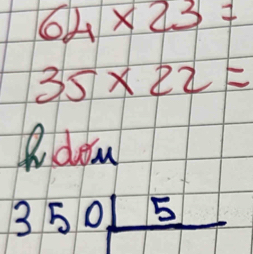 64 × 23 =
35 × 22 =
350 5